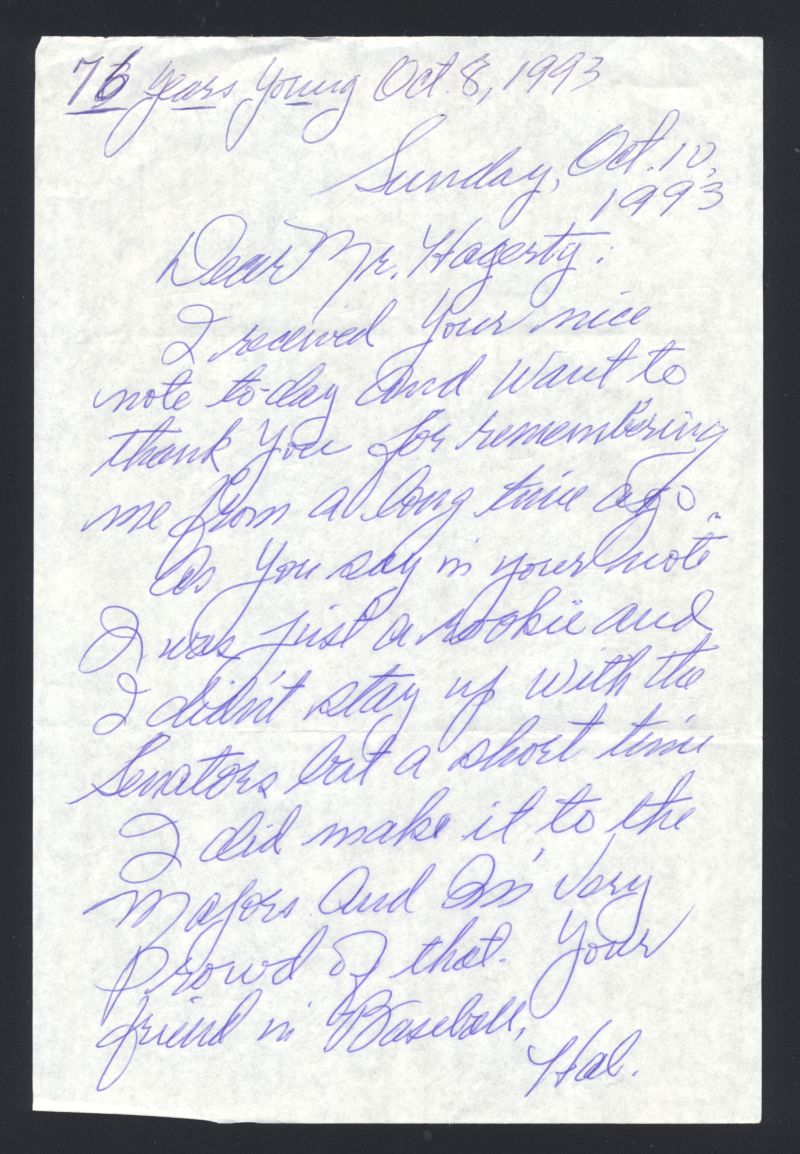 76 years young Oct. 8, 1993
Sunday, Oct. 10,
1993
Dear Mr. Hagerty:
I received your nice
note to-day and want to
thank you for remembering
me from a long time ago.
As you say in your note
I was just a rookie and
I didn't stay up with the
Senators but a short time
I did make it to the
Majors and I'm very
proud of that. Your
friend in Baseball,
Hal.